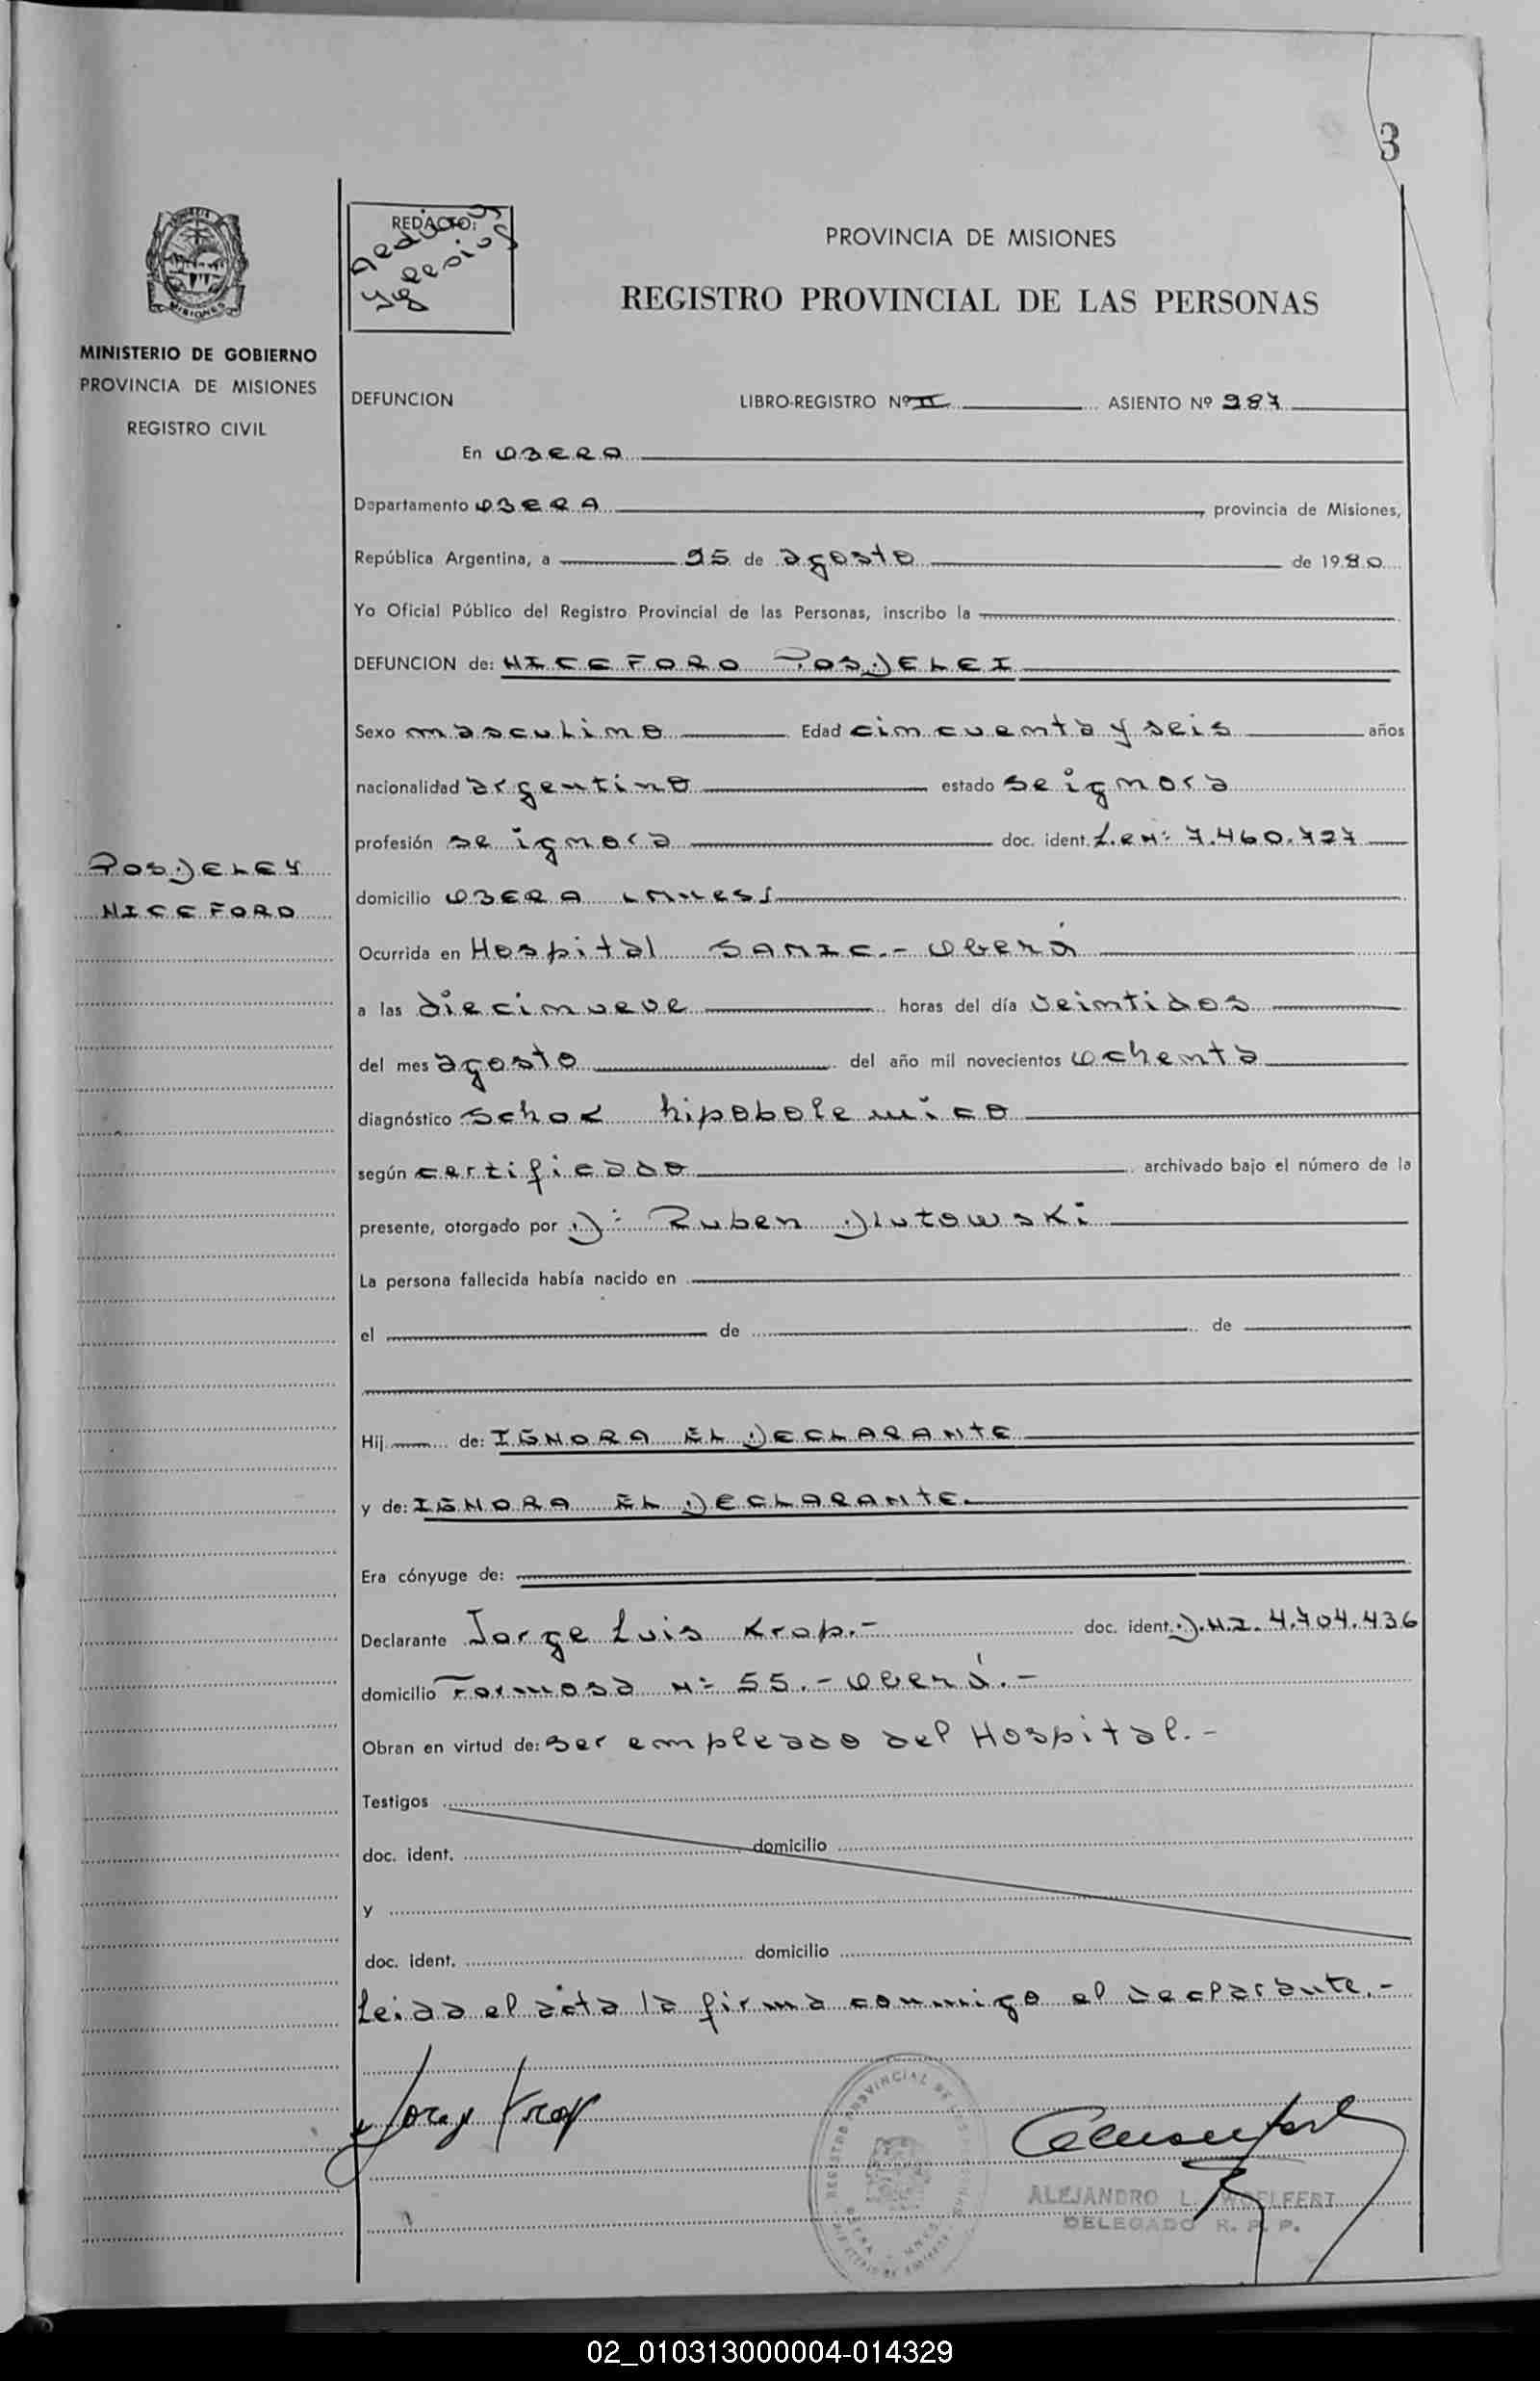 3
REDACTO:
PROVINCIA DE MISIONES
REGISTRO PROVINCIAL DE LAS PERSONAS
MINISTERIO DE GOBIERNO
PROVINCIA DE MISIONES
REGISTRO CIVIL
DEFUNCION LIBRO-REGISTRO Nº II ASIENTO Nº 287
En OBERA
Departamento OBERA, provincia de Misiones,
República Argentina, a 25 de agosto de 1980
Yo Oficial Público del Registro Provincial de las Personas, inscribo la
DEFUNCION de: NICEFORO POSDELEI
Sexo masculino Edad cincuenta y seis años
nacionalidad argentino estado se ignora
profesión se ignora doc. ident. L.E Nº 7.460.727
POSDELEY
NICEFORO
domicilio OBERA MNES
Ocurrida en Hospital SAMIC.- Oberá
a las diecinueve horas del día veintidos
del mes agosto del año mil novecientos ochenta
diagnóstico Schok hipobolemico
según certificado archivado bajo el número de la
presente, otorgado por Dº Ruben Dlutowski
La persona fallecida había nacido en
el de de
Hij de: IGNORA EL DECLARANTE
y de: IGNORA EL DECLARANTE.
Era cónyuge de:
Declarante Jorge Luis Krap.- doc. ident. D.N.I. 4.704.436
domicilio Formosa Nº 55.- Oberá.-
Obran en virtud de: ser empleado del Hospital.-
Testigos
doc. ident. domicilio
y
doc. ident. domicilio
Leida el acta la firma conmigo el declarante.-
ALEJANDRO L. WOELFERT
DELEGADO R. P. P.
02_010313000004-014329